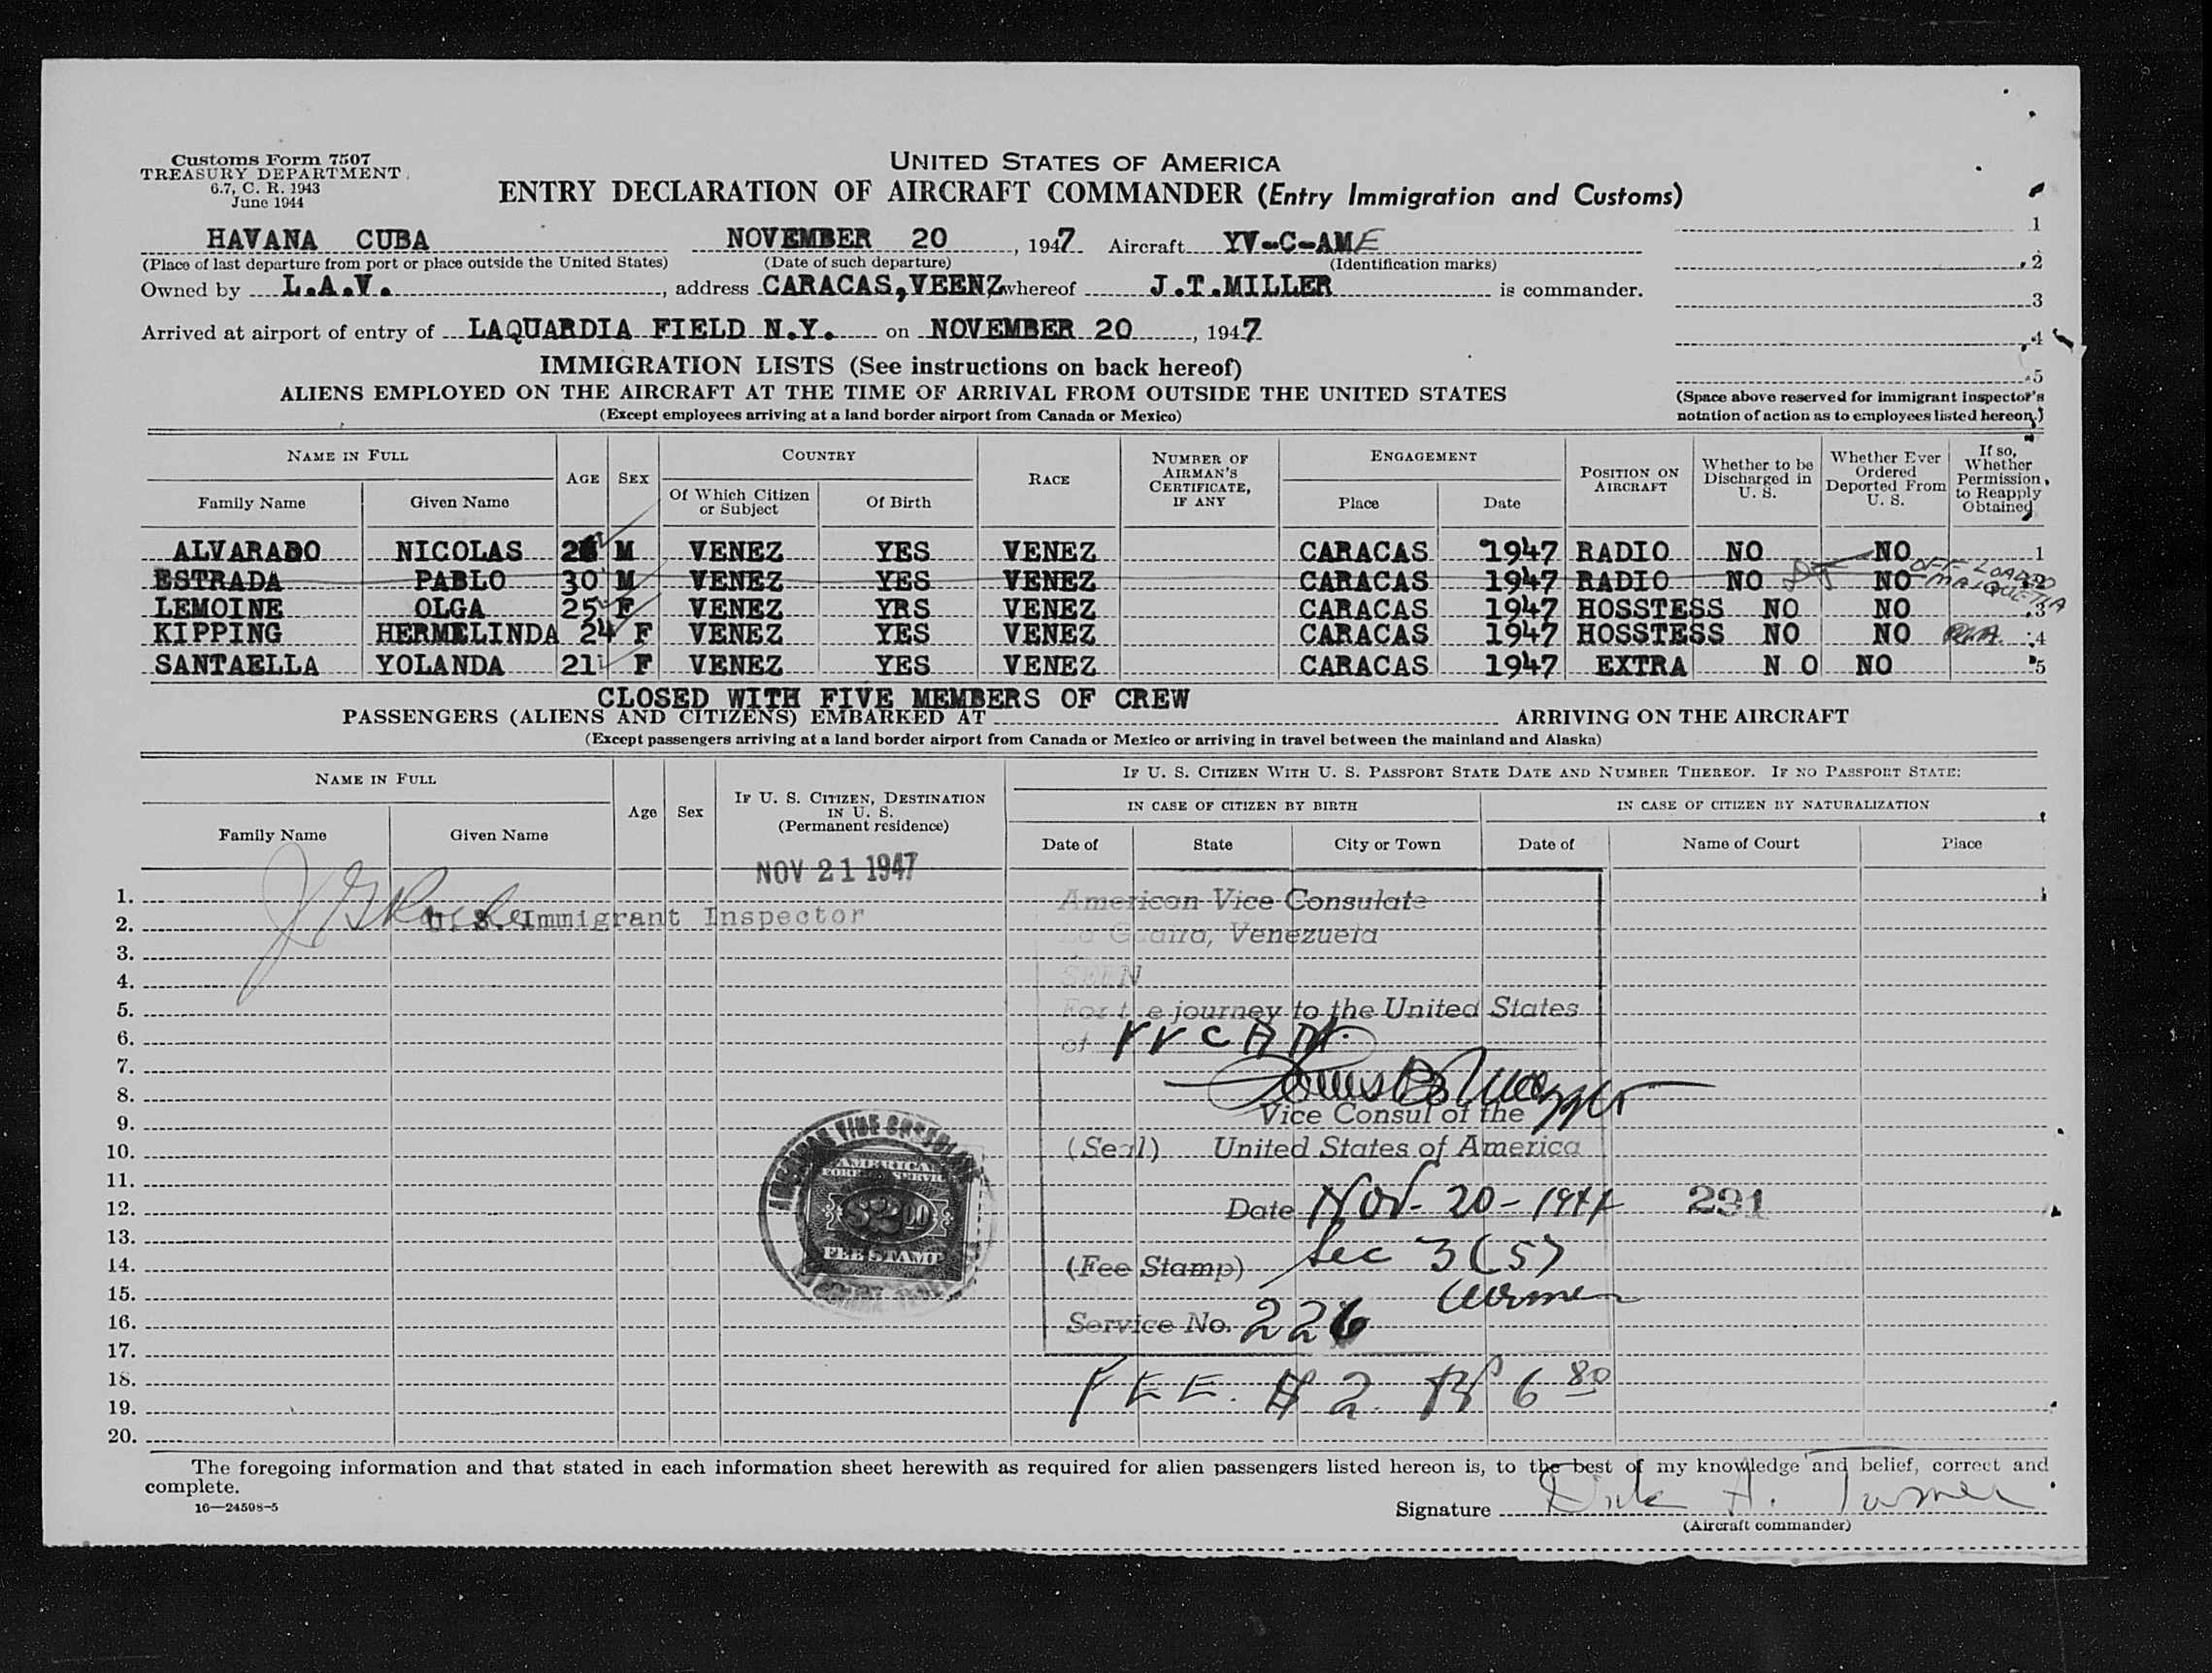 Customs Form 7507
TREASURY DEPARTMENT
6.7, C. R. 1943
June 1944
UNITED STATES OF AMERICA
ENTRY DECLARATION OF AIRCRAFT COMMANDER (Entry Immigration and Customs)
HAVANA CUBA NOVEMBER 20, 1947 Aircraft YV-C-AME
(Place of last departure from port or place outside the United States) (Date of such departure) (Identification marks)
Owned by L.A.V., address CARACAS,VEENZ whereof J.T.MILLER is commander.
Arrived at airport of entry of LAQUARDIA FIELD N.Y. on NOVEMBER 20, 1947
1
2
3
4
5
(Space above reserved for immigrant inspector's
notation of action as to employees listed hereon.)
IMMIGRATION LISTS (See instructions on back hereof)
ALIENS EMPLOYED ON THE AIRCRAFT AT THE TIME OF ARRIVAL FROM OUTSIDE THE UNITED STATES
(Except employees arriving at a land border airport from Canada or Mexico)
NAME IN FULL
Family Name Given Name
AGE SEX
COUNTRY
Of Which Citizen or Subject
Of Birth
RACE
NUMBER OF AIRMAN'S CERTIFICATE, IF ANY
ENGAGEMENT
Place Date
POSITION ON AIRCRAFT
Whether to be Discharged in U. S.
Whether Ever Ordered Deported From U. S.
If so, Whether Permission to Reapply Obtained
ALVARADO NICOLAS M VENEZ YES VENEZ CARACAS 1947 RADIO NO NO 1
ESTRADA PABLO 30 M VENEZ YES VENEZ CARACAS 1947 RADIO NO NO OFF LOADED MAIQUETIA 2
LEMOINE OLGA 25 F VENEZ YRS VENEZ CARACAS 1947 HOSSTESS NO NO 3
KIPPING HERMELINDA 24 F VENEZ YES VENEZ CARACAS 1947 HOSSTESS NO NO 4
SANTAELLA YOLANDA 21 F VENEZ YES VENEZ CARACAS 1947 EXTRA N O NO 5
CLOSED WITH FIVE MEMBERS OF CREW
PASSENGERS (ALIENS AND CITIZENS) EMBARKED AT ARRIVING ON THE AIRCRAFT
(Except passengers arriving at a land border airport from Canada or Mexico or arriving in travel between the mainland and Alaska)
NAME IN FULL
Family Name Given Name
Age Sex
IF U. S. CITIZEN, DESTINATION IN U. S.
(Permanent residence)
IF U. S. CITIZEN WITH U. S. PASSPORT STATE DATE AND NUMBER THEREOF. IF NO PASSPORT STATE:
IN CASE OF CITIZEN BY BIRTH
Date of State City or Town
IN CASE OF CITIZEN BY NATURALIZATION
Date of Name of Court Place
NOV 21 1947
U. S. Immigrant Inspector
1.
2.
3.
4.
5.
6.
7.
8.
9.
10.
11.
12.
13.
14.
15.
16.
17.
18.
19.
20.
American Vice Consulate
La Guaira, Venezuela
SEEN
For the journey to the United States
of YV C AM
Vice Consul of the
(Seal) United States of America
Date Nov- 20 - 1947 291
(Fee Stamp) Sec 3 (5)
Airmen
Service No. 226
FEE. $ 2. Bs 6 80
AMERICAN VICE CONSULATE
AMERICAN
FOREIGN SERVICE
$2.00
FEE STAMP
The foregoing information and that stated in each information sheet herewith as required for alien passengers listed hereon is, to the best of my knowledge and belief, correct and
complete.
16—24598-5
Signature
(Aircraft commander)